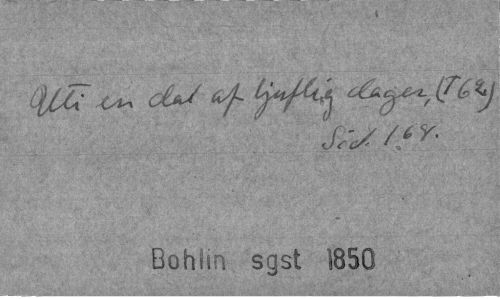 Uti en dal af ljuflig dager, (T62)
Söd. 1.68.
Bohlin sgst 1850